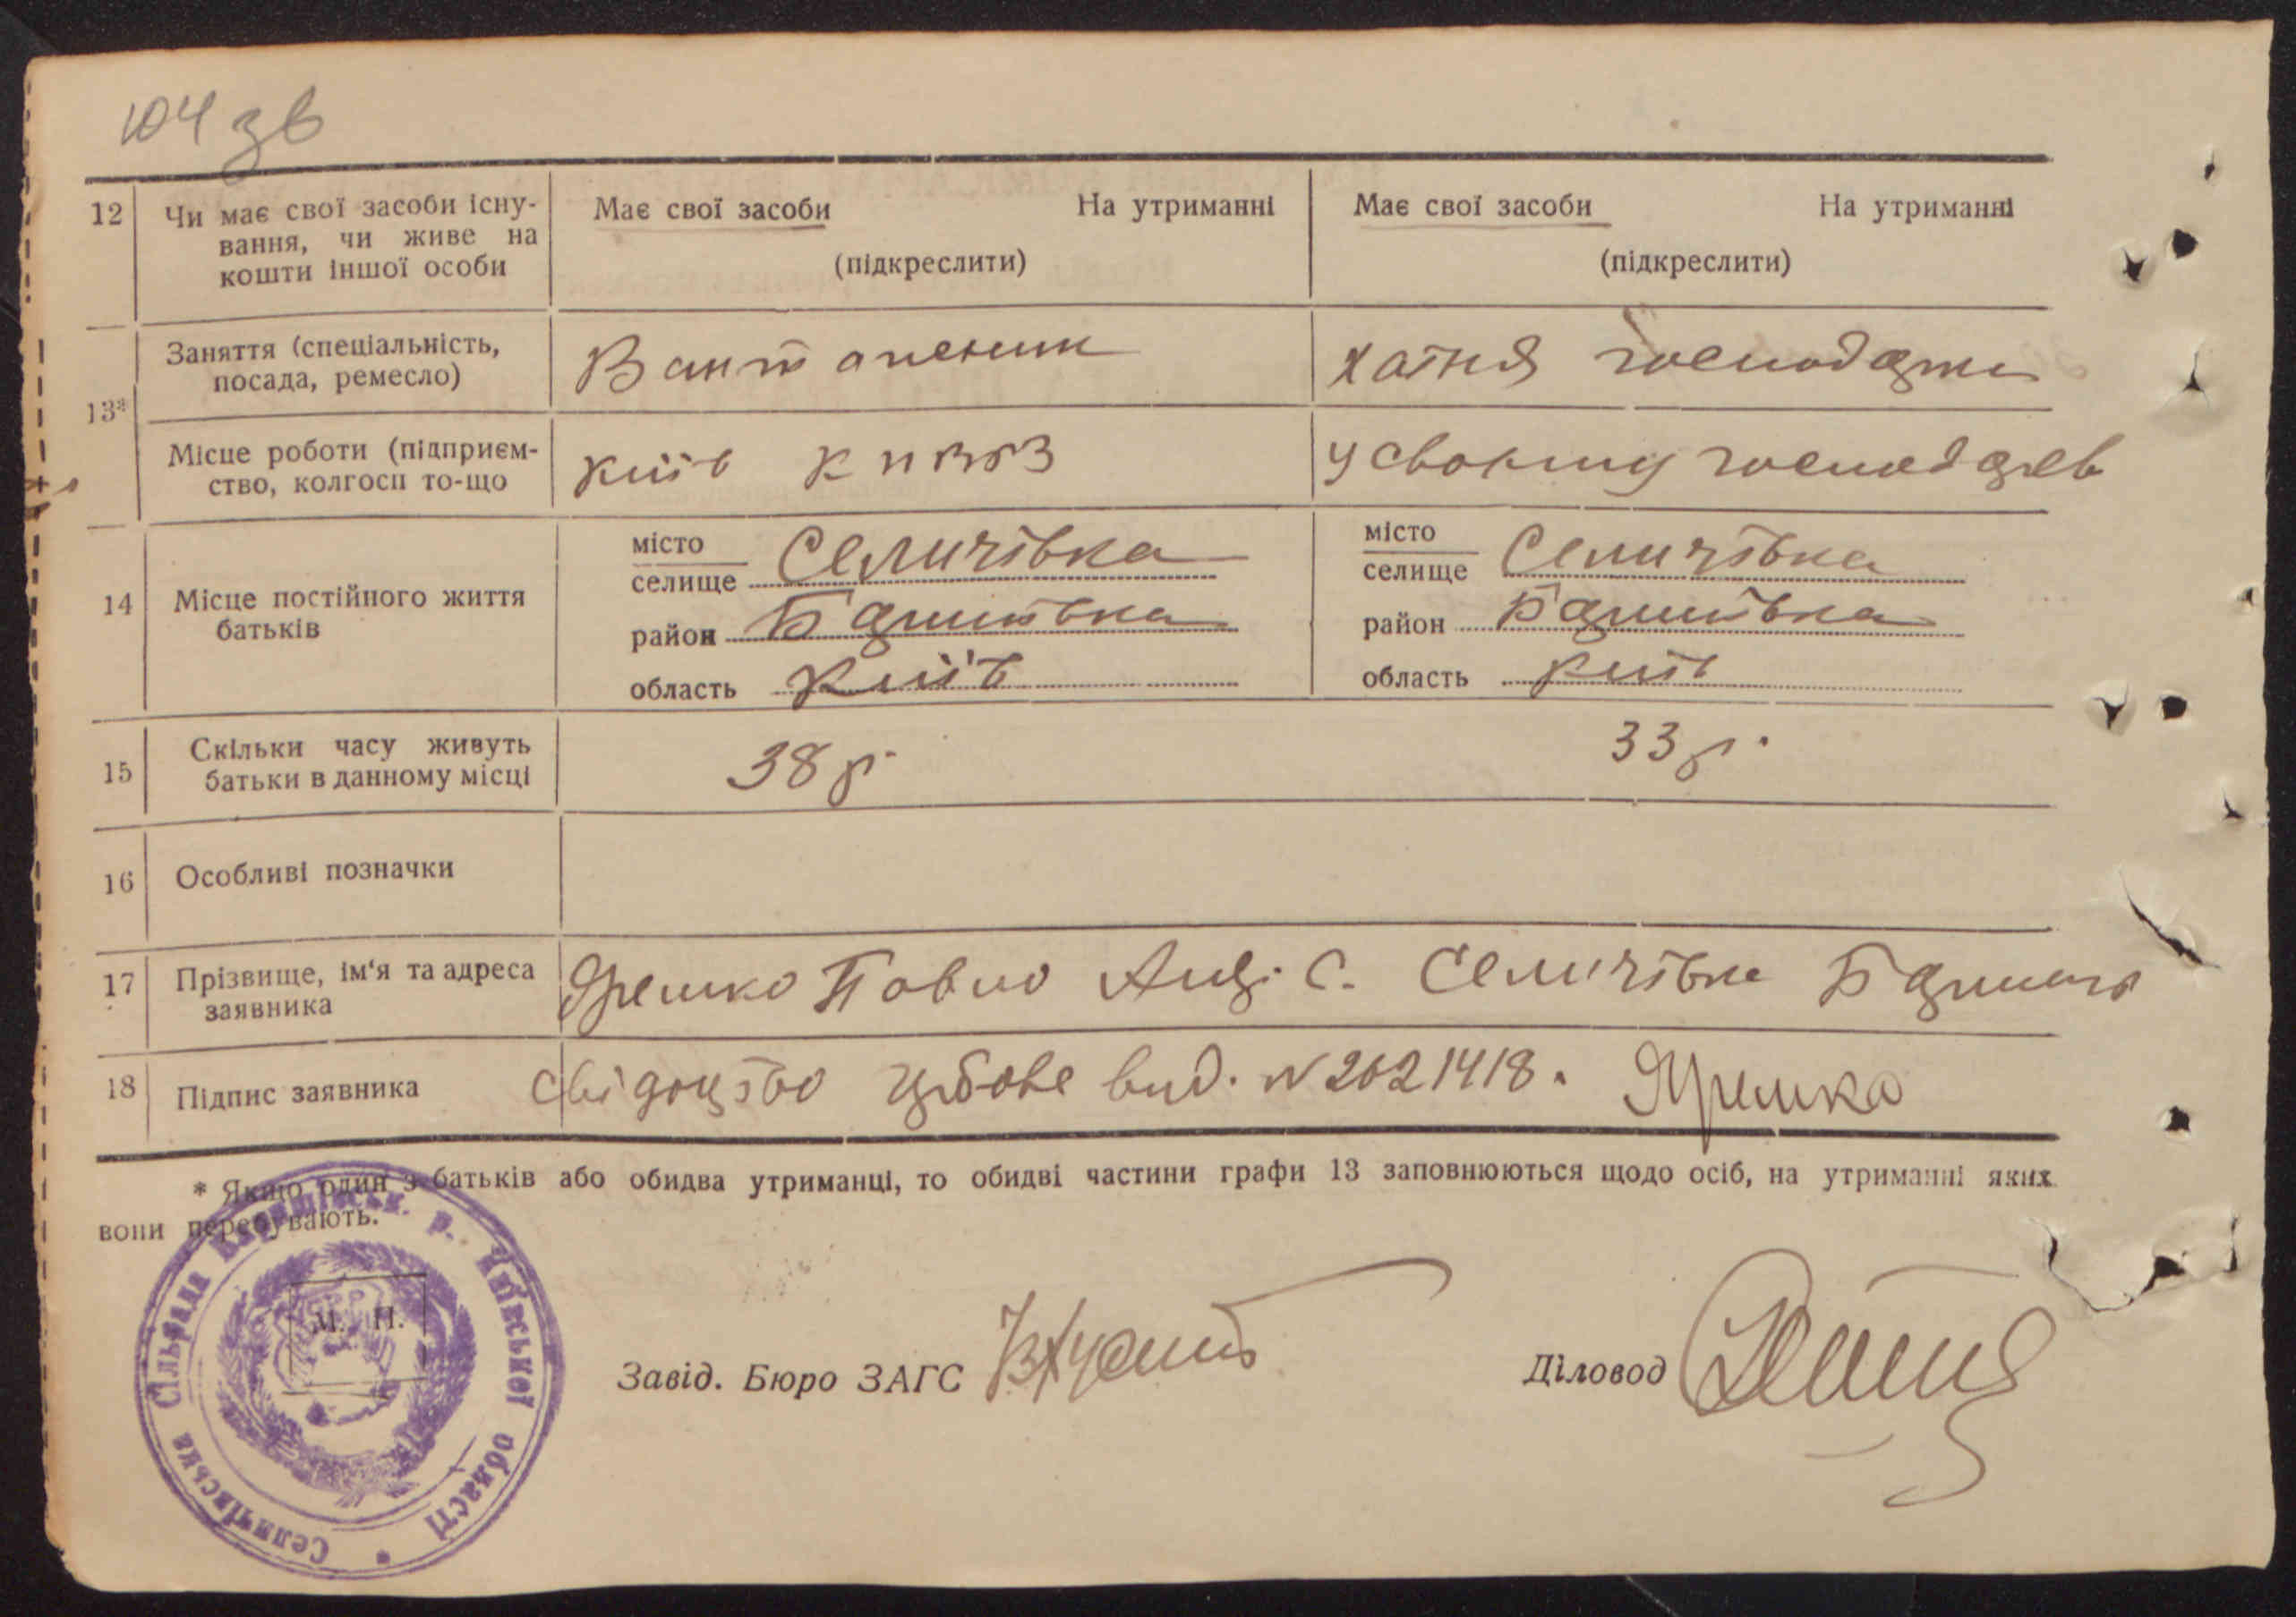 104 зв
12 Чи має свої засоби існу- Має свої засоби На утриманні Має свої засоби На утриманні
вання, чи живе на
кошти іншої особи (підкреслити) (підкреслити)
13* Заняття (спеціальність, Вантаженик хатня господарка
посада, ремесло)
Місце роботи (підприєм- Київ у своєму господарв
ство, колгосп то-що
14 Місце постійного життя місто Селичівка місто Селичівка
батьків селище селище
район Баришівка район Баришівка
область Київ область Київ
15 Скільки часу живуть 38 р. 33 р.
батьки в данному місці
16 Особливі позначки
17 Прізвище, ім'я та адреса Ярешко Павло Анд. С. Селичівка
заявника
18 Підпис заявника свідоцтво вид. N 2021418. Ярешко
* Якщо один з батьків або обидва утриманці, то обидві частини графи 13 заповнюються щодо осіб, на утриманні яких
вони перебувають.
Селичівська Сільрада р. Київської області *
М. П.
Завід. Бюро ЗАГС
Діловод